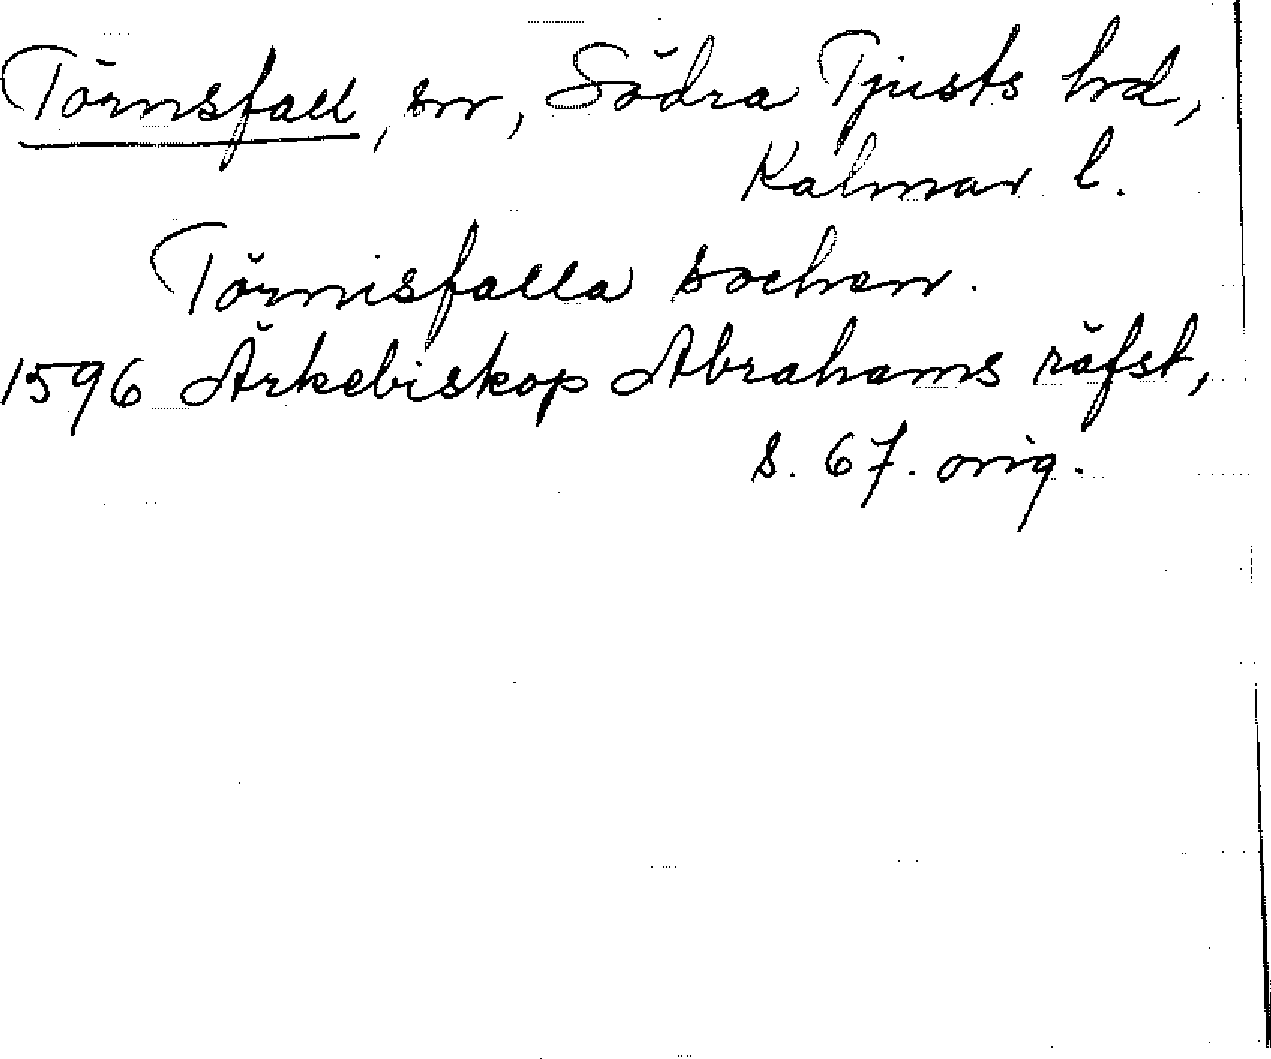 Törnsfall, sn, Södra Tjusts hd,
Kalmar l.
Törnisfalla sochen.
1596 Ärkebiskop Abrahams räfst,
s. 67. orig.